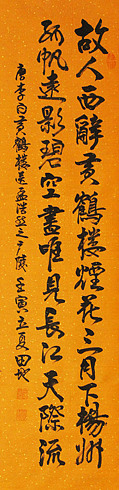 故人西辭黃鶴樓煙花三月下楊州
孤帆遠影碧空盡唯見長江天際流
唐李白黃鶴樓送孟浩然之廣陵壬寅立夏田